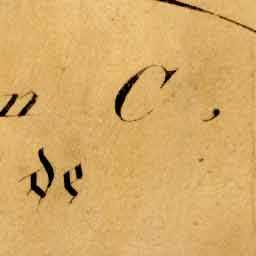 n C,
de